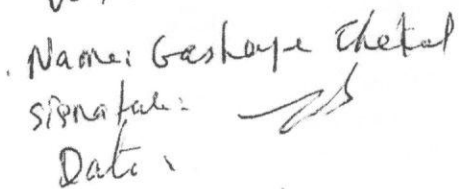 Name: Gashaye Chekol
signature:
Date: